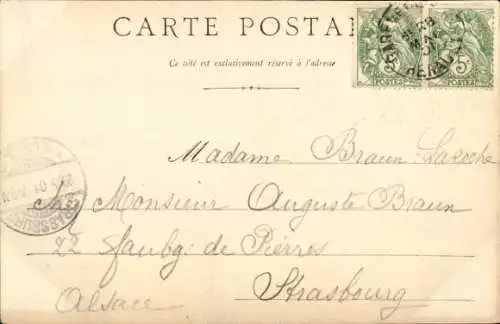 CARTE POSTALE
Ce côté est exclusivement réservé à l'adresse
5c 5c
POSTES POSTES
Madame Braun Lacoche
Monsieur Auguste Braun
22 faubg: de Pierres
Strasbourg
Alsace